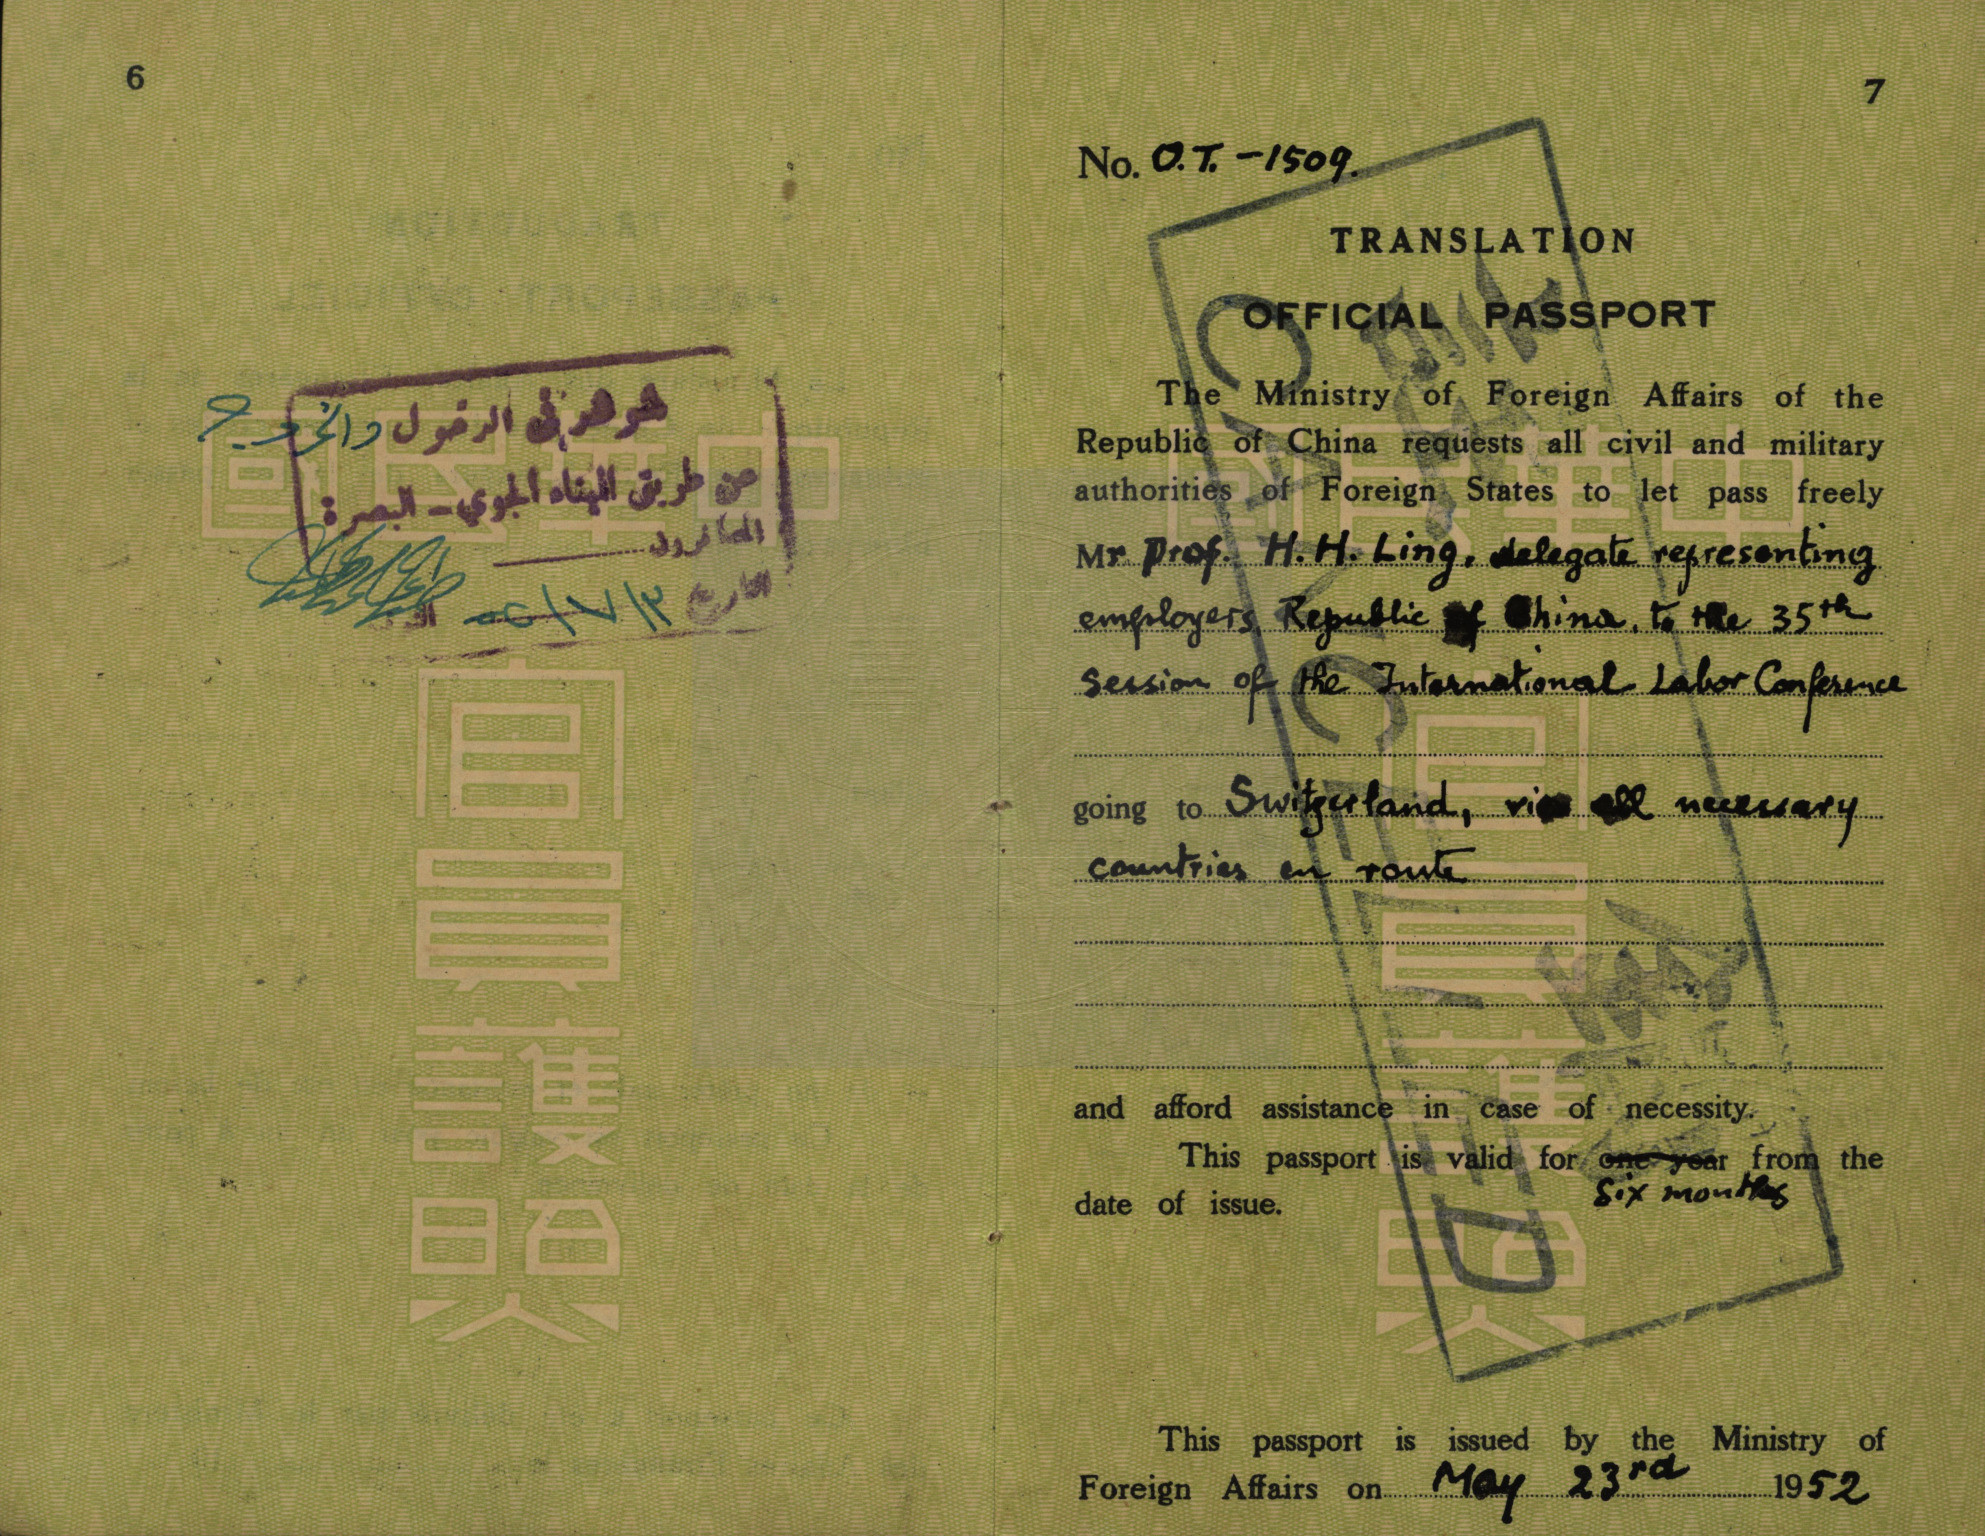 6
من طريق الميناء الجوي - البصرة
التاريخ
中華民國
官員護照
7
No. O.T. -1509.
TRANSLATION
OFFICIAL PASSPORT
The Ministry of Foreign Affairs of the
Republic of China requests all civil and military
authorities of Foreign States to let pass freely
Mr. Prof. H. H. Ling, delegate representing
employers, Republic of China, to the 35th
session of the International Labor Conference
going to Switzerland, via all necessary
countries en route
and afford assistance in case of necessity.
This passport is valid for one year from the
six months
date of issue.
This passport is issued by the Ministry of
Foreign Affairs on May 23rd 1952
中華民國
官員護照
CANCELLED